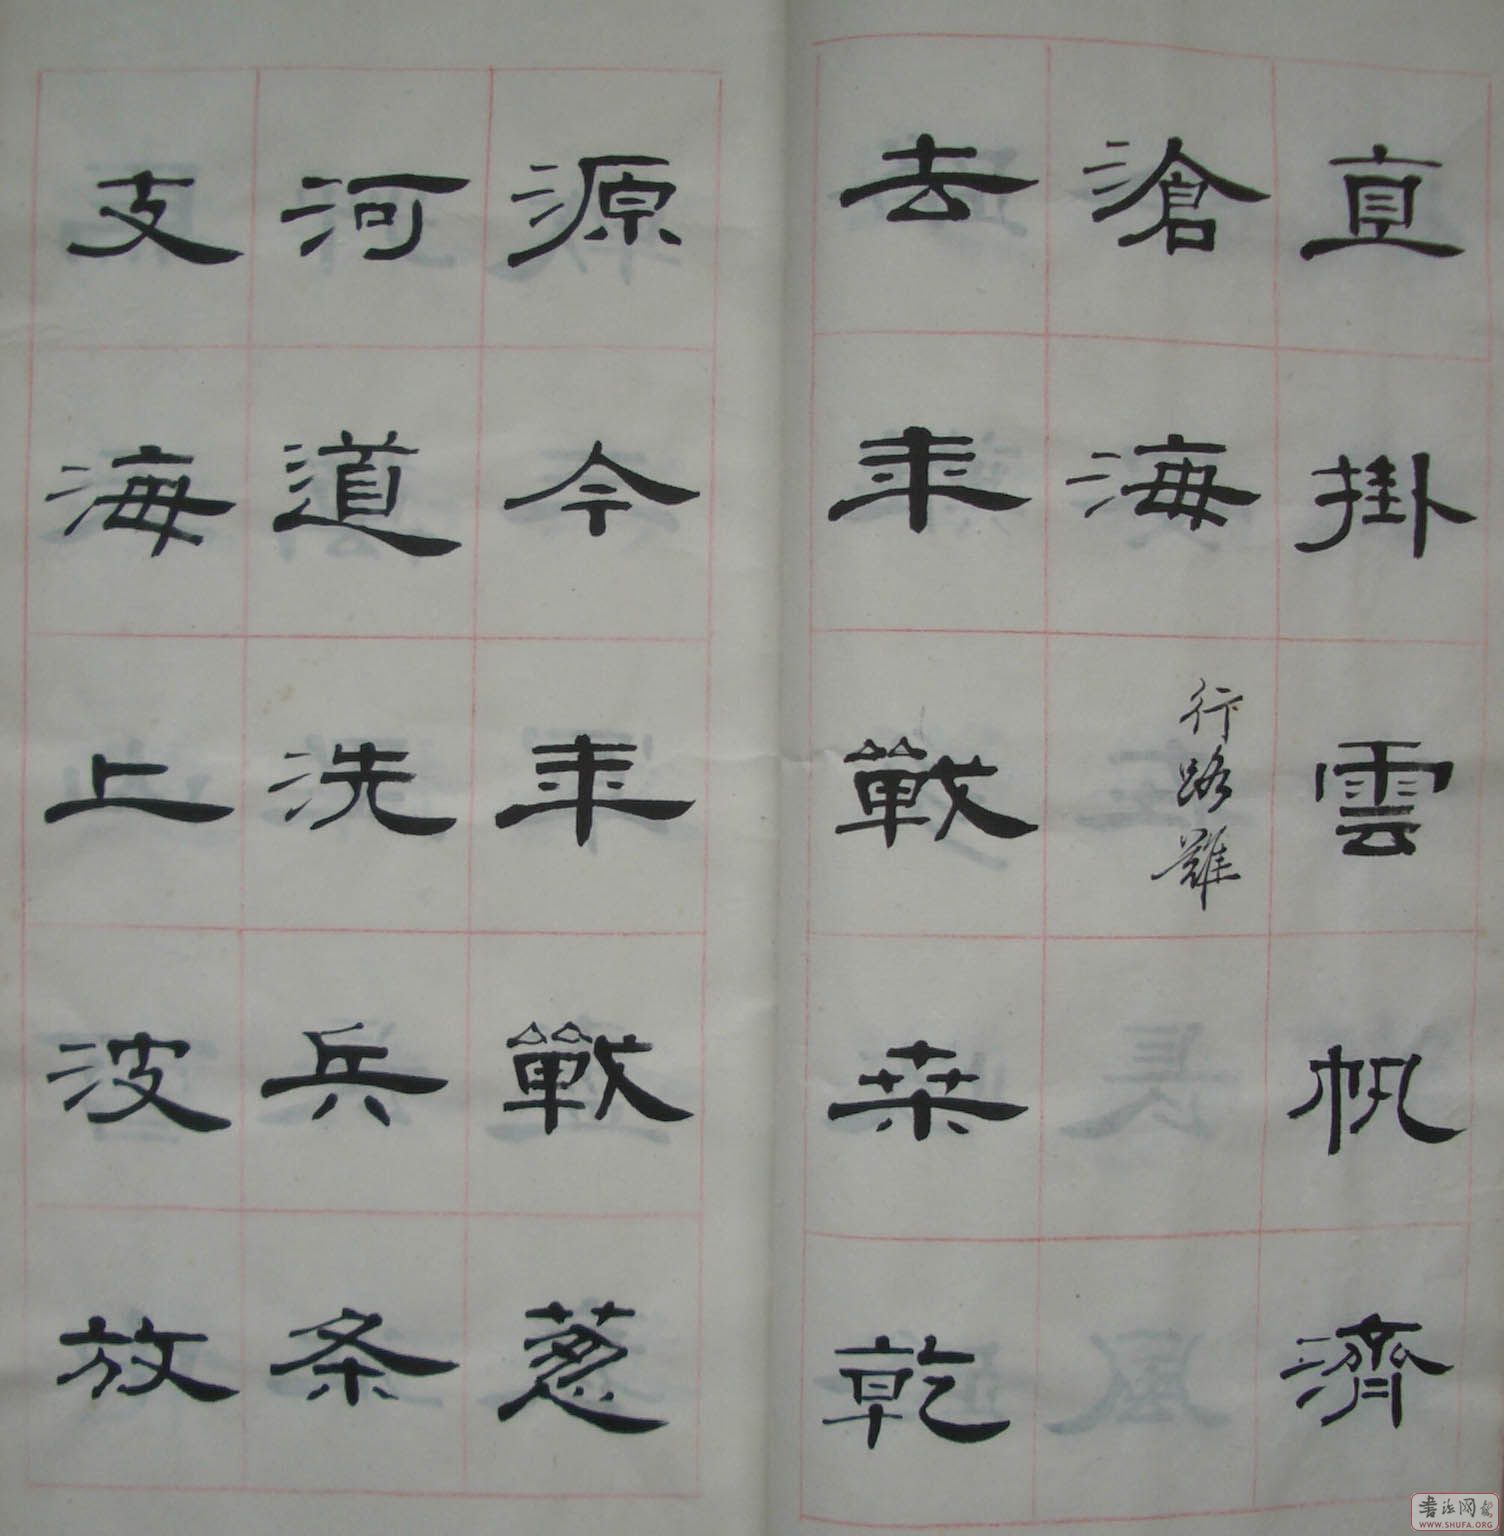 直掛雲帆濟
滄海
行路難
去年戰桒乾
源今年戰葱
河道洗兵条
支海上波放
書法网
WWW.SHUFA.ORG